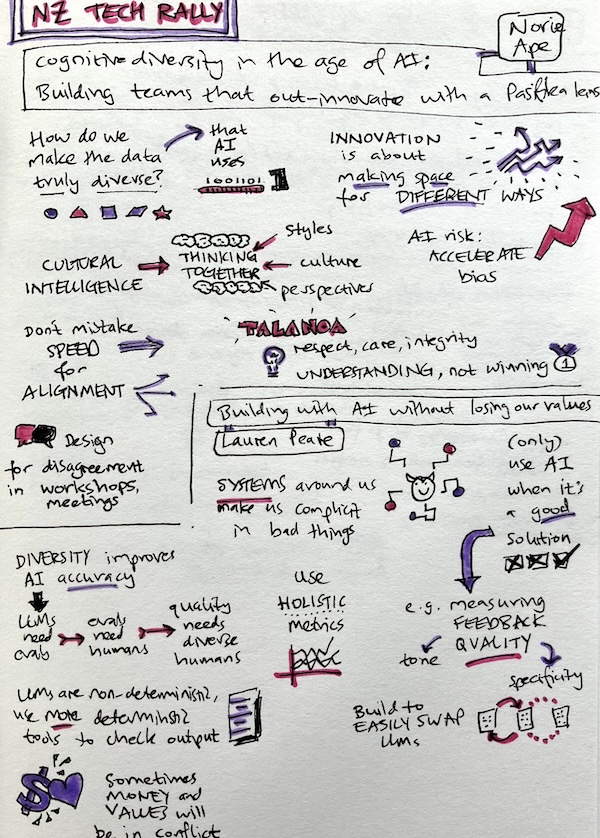 NZ TECH RALLY
Norie
Ape
cognitive diversity in the age of AI:
Building teams that out-innovate with a Pasifika lens
How do we
make the data
truly diverse?
that
AI
uses
1001101
INNOVATION
is about
making space
for DIFFERENT WAYS
AI risk:
ACCELERATE
bias
CULTURAL
INTELLIGENCE
THINKING
TOGETHER
styles
culture
perspectives
Don't mistake
SPEED
for
ALIGNMENT
TALANOA
respect, care, integrity
UNDERSTANDING, not winning
1
Design
for disagreement
in workshops,
meetings
Building with AI without losing our values
Lauren Peate
SYSTEMS around us
make us complicit
in bad things
(only)
use AI
when it's
a good
solution
DIVERSITY improves
AI accuracy
LLMs
need
evals
evals
need
humans
quality
needs
diverse
humans
use
HOLISTIC
metrics
e.g. measuring
FEEDBACK
QUALITY
tone
specificity
LLMs are non-deterministic,
use more deterministic
tools to check output
Build to
EASILY SWAP
LLMs
$
Sometimes
MONEY and
VALUES will
be in conflict